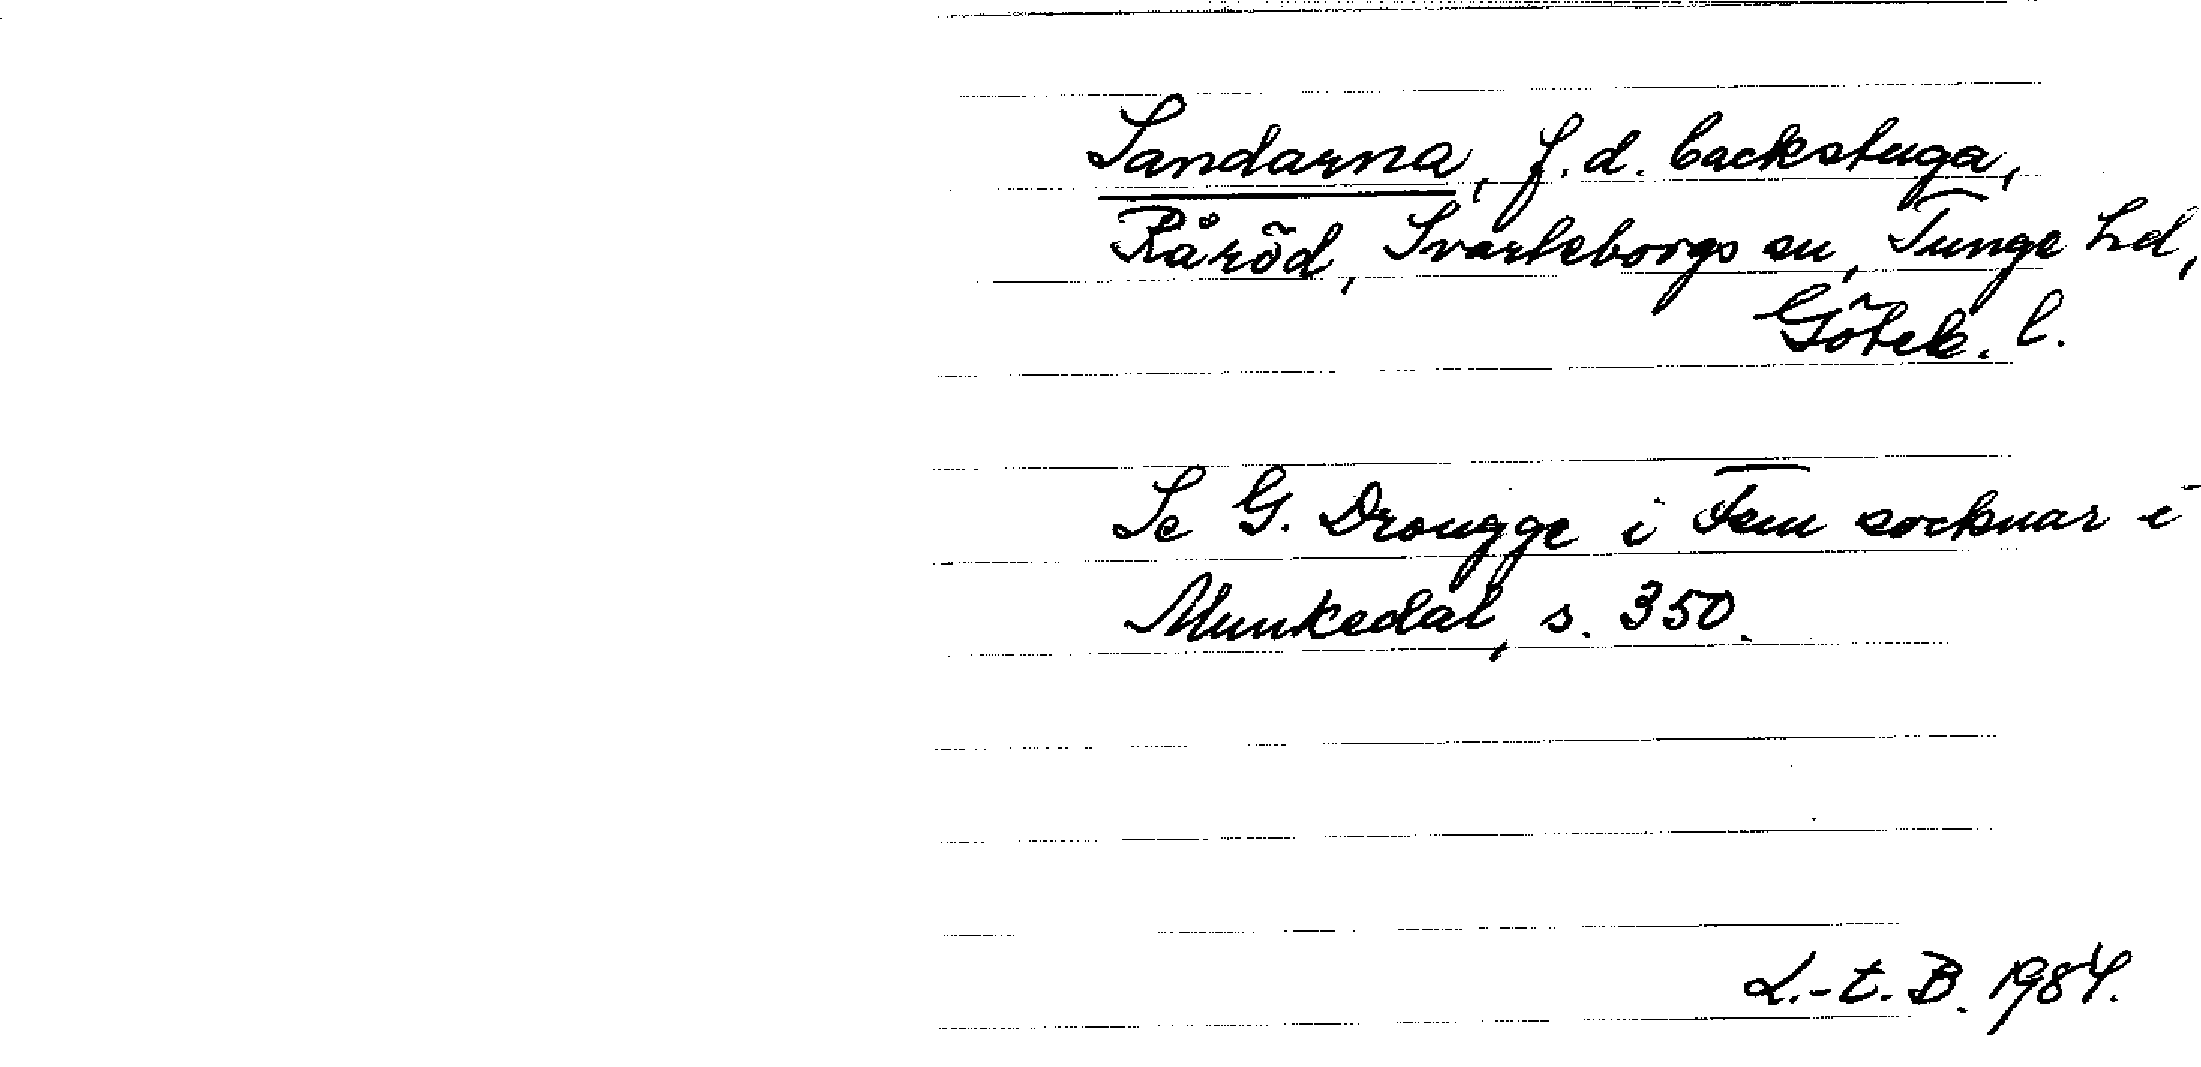 Sandarna, f.d. backstuga,
Råröd, Svarteborgs sn, Tunge hd,
Göteb. l.
Se G. Drougge i Fem socknar i
Munkedal, s. 350.
L.-t. B. 1984.